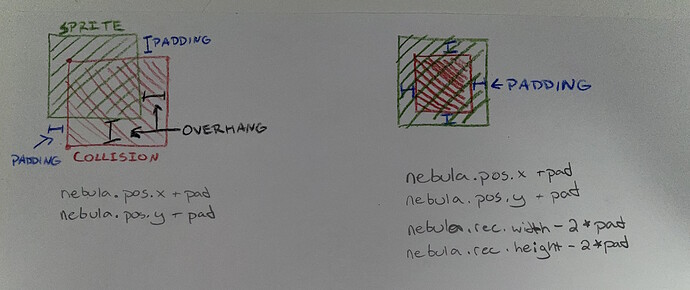 SPRITE
PADDING
OVERHANG
PADDING
COLLISION
nebula.pos.x + pad
nebula.pos.y + pad
PADDING
nebula.pos.x + pad
nebula.pos.y + pad
nebula.rec.width - 2 * pad
nebula.rec.height - 2 * pad